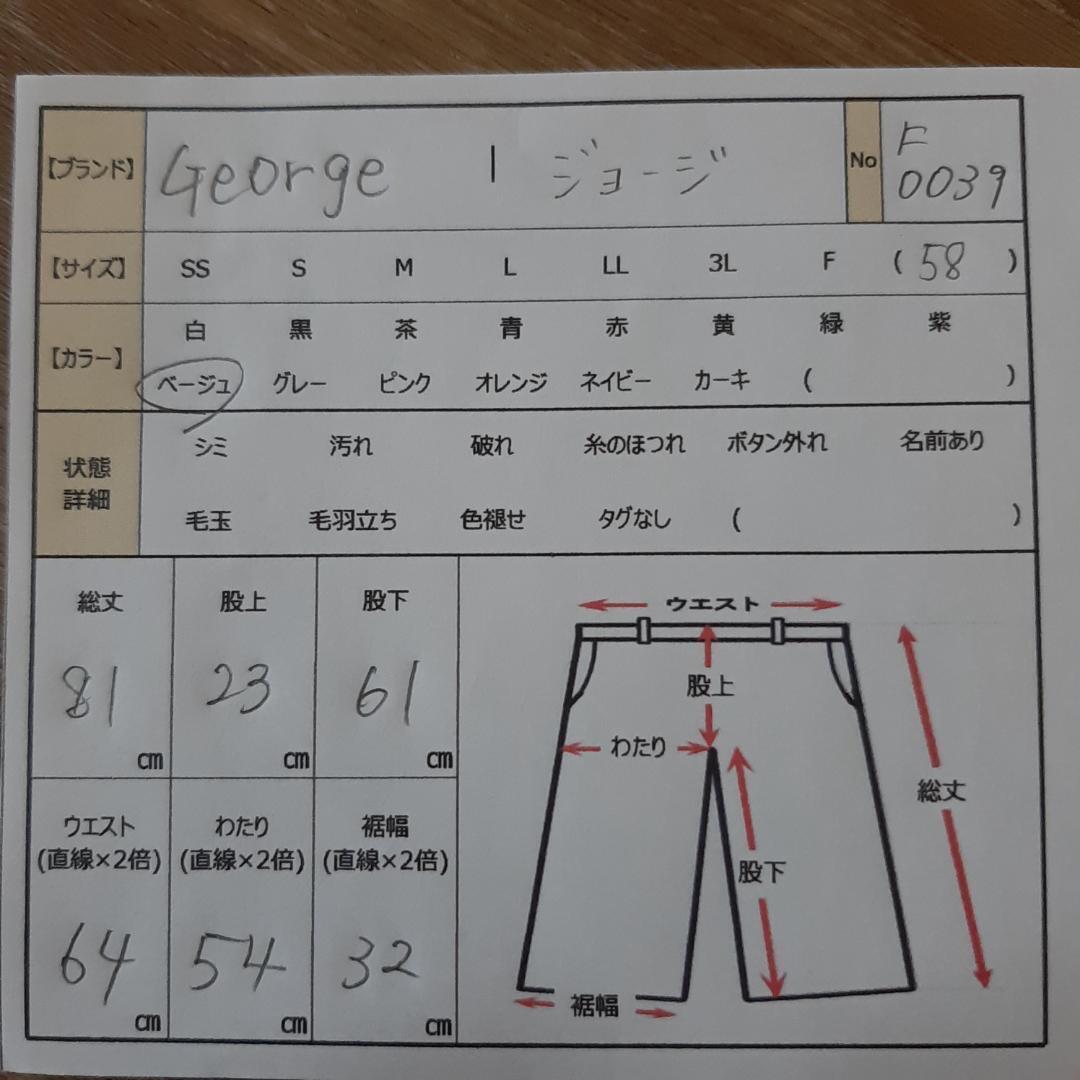 【ブランド】 George | ジョージ No F 0039
【サイズ】 SS S M L LL 3L F ( 58 )
【カラー】 白 黒 茶 青 赤 黄 緑 紫
ベージュ グレー ピンク オレンジ ネイビー カーキ ( )
状態詳細 シミ 汚れ 破れ 糸のほつれ ボタン外れ 名前あり
毛玉 毛羽立ち 色褪せ タグなし ( )
総丈 股上 股下
81 cm 23 cm 61 cm
ウエスト わたり 裾幅
(直線×2倍) (直線×2倍) (直線×2倍)
64 cm 54 cm 32 cm
ウエスト
股上
わたり
総丈
股下
裾幅